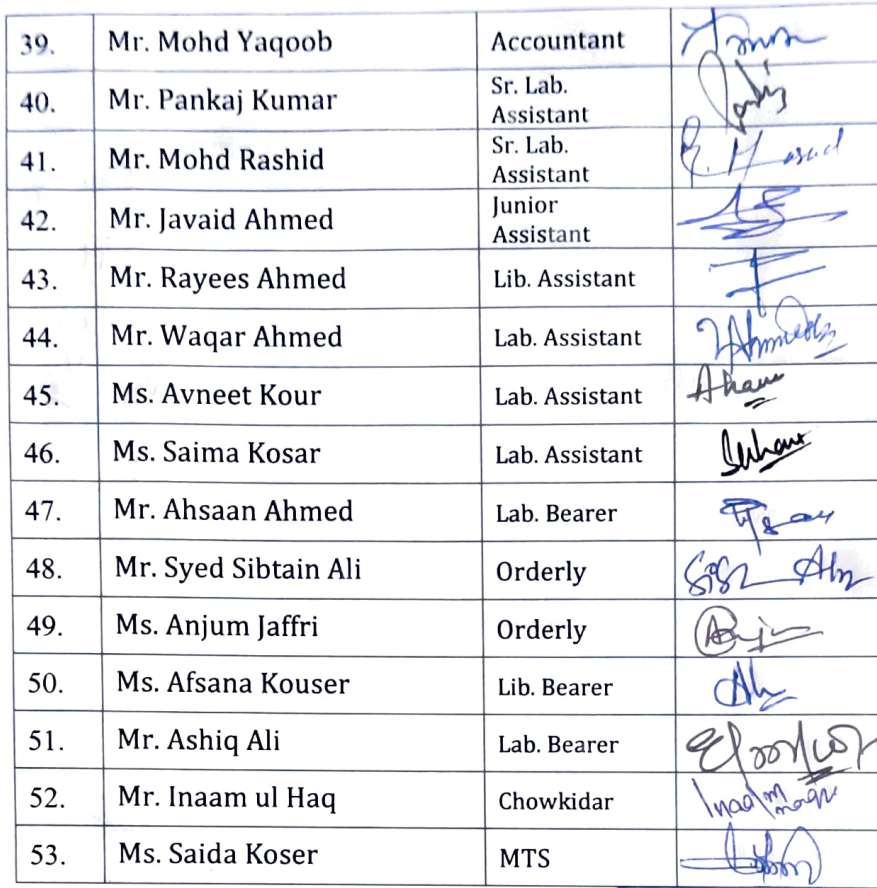 39. Mr. Mohd Yaqoob Accountant
40. Mr. Pankaj Kumar Sr. Lab. Assistant
41. Mr. Mohd Rashid Sr. Lab. Assistant
42. Mr. Javaid Ahmed Junior Assistant
43. Mr. Rayees Ahmed Lib. Assistant
44. Mr. Waqar Ahmed Lab. Assistant
45. Ms. Avneet Kour Lab. Assistant
46. Ms. Saima Kosar Lab. Assistant
47. Mr. Ahsaan Ahmed Lab. Bearer
48. Mr. Syed Sibtain Ali Orderly
49. Ms. Anjum Jaffri Orderly
50. Ms. Afsana Kouser Lib. Bearer
51. Mr. Ashiq Ali Lab. Bearer
52. Mr. Inaam ul Haq Chowkidar
53. Ms. Saida Koser MTS